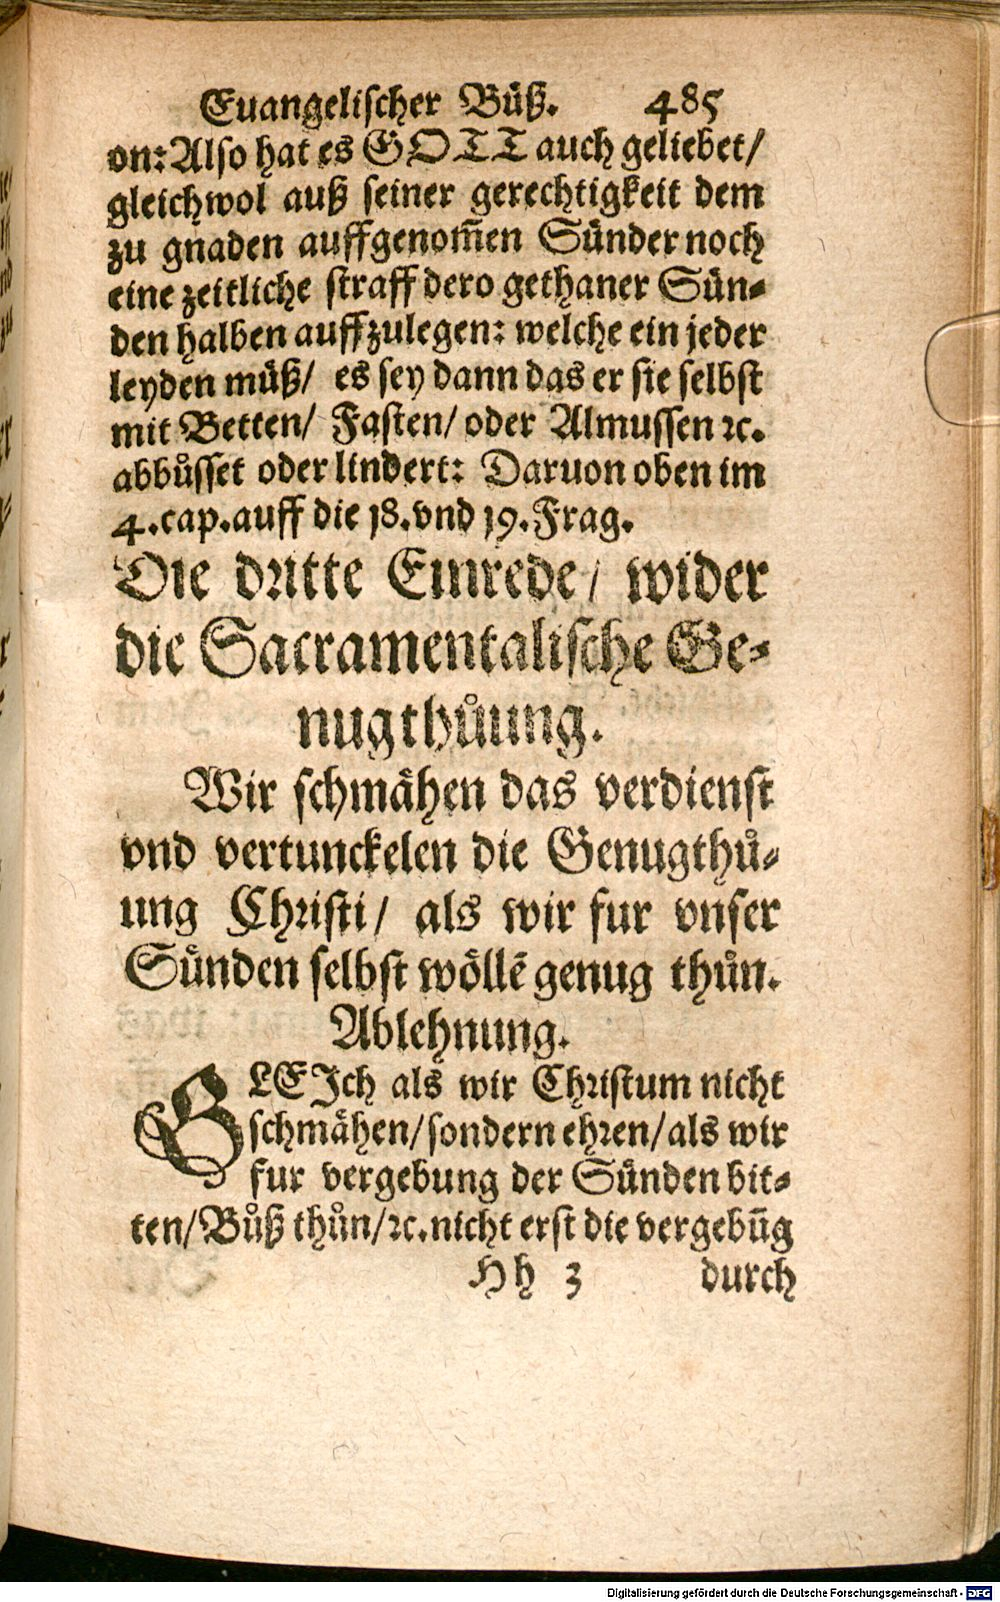 Euangelischer Büß. 485
on: Also hat es GOTT auch geliebet/
gleichwol auß seiner gerechtigkeit dem
zu gnaden auffgenom̃en Sünder noch
eine zeitliche straff dero gethaner Sün⸗
den halben auffzulegen: welche ein jeder
leyden müß/ es sey dann das er sie selbst
mit Betten/ Fasten/ oder Almussen ꝛc.
abbůsset oder lindert: Daruon oben im
4. cap. auff die 18. vnd 19. Frag.
Die dritte Einrede/ wider
die Sacramentalische Ge⸗
nugthůung.
Wir schmähen das verdienst
vnd vertunckelen die Genugthů⸗
ung Christi/ als wir fur vnser
Sünden selbst wöllẽ genug thůn.
Ablehnung.
GLEJch als wir Christum nicht
schmähen/ sondern ehren/ als wir
fur vergebung der Sünden bit⸗
ten/ Bůß thůn/ ꝛc. nicht erst die vergebũg
Hh 3 durch
Digitalisierung gefördert durch die Deutsche Forschungsgemeinschaft - DFG